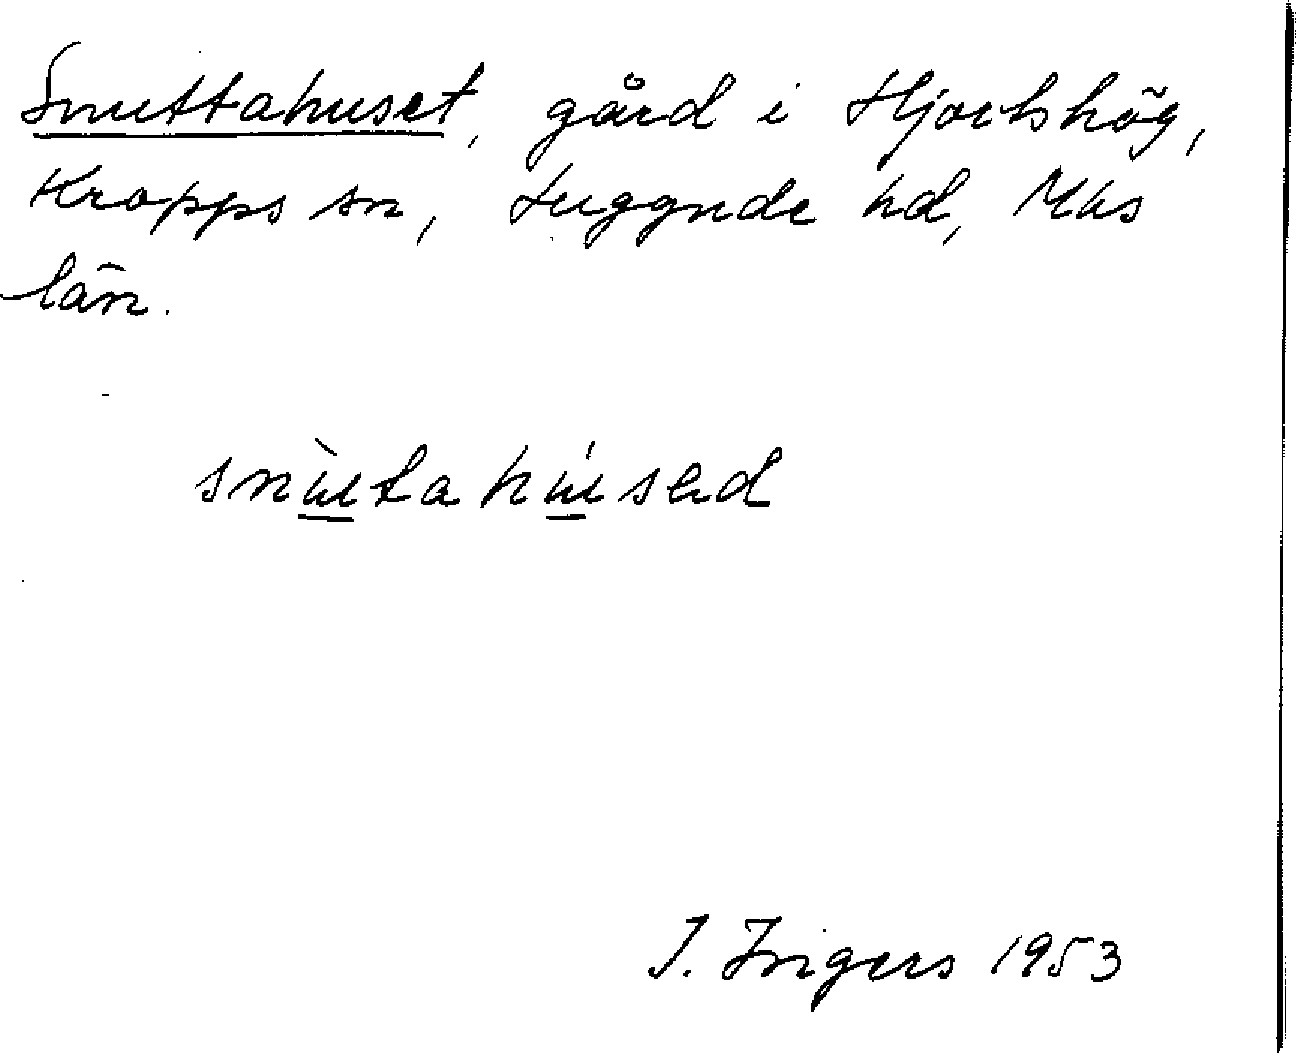 Snuttahuset, gård i Hjortshög,
Kropps sn, Luggude hd, Mhs
län.
snùtahúsed
I. Ingers 1953